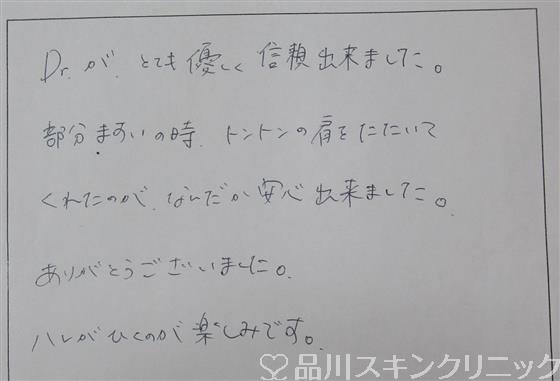 Dr.が、とても優しく信頼出来ました。
部分ますいの時、トントンの肩をたたいて
くれたのが、なんだか安心出来ました。
ありがとうございました。
ハレがひくのが楽しみです。
品川スキンクリニック